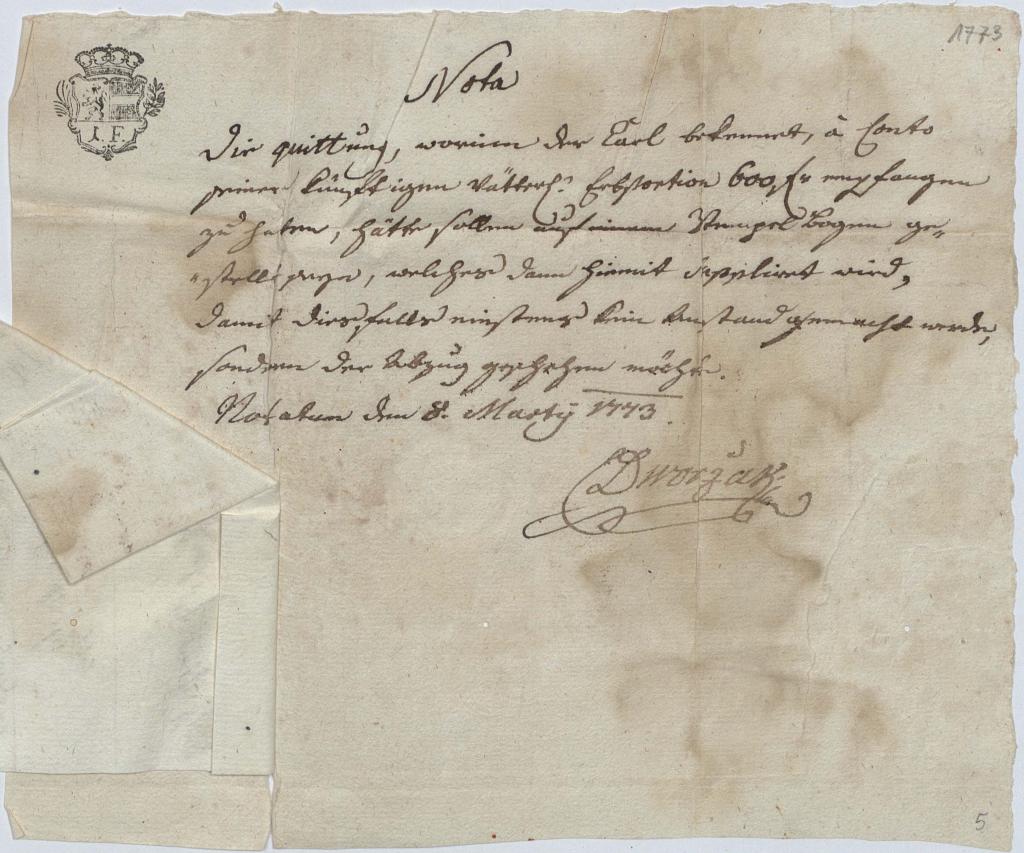 1773
Nota
I. F.
Die quittung, worinn der Carl bekennet, à Conto
seiner künfftigen Vätterl: Erbsportion 600 f: empfangen
zu haben, hätte sollen auf einem Stempel Bogen ge-
-stellt seyn, welches dann hiemit suppliret wird,
damit diesfalls einstens kein Anstand gemacht werde,
sondern der Abzug geschehen möchte.
Notatum den 8. Martÿ 1773.
Dworzak
5